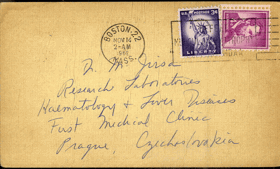 BOSTON, 22
NOV 14
2-AM
MASS.
U.S. POSTAGE
3¢
LIBERTY
Dr. M. Jirsa
Research Laboratories
Haematology & Liver Diseases
First Medical Clinic
Prague, Czechoslovakia